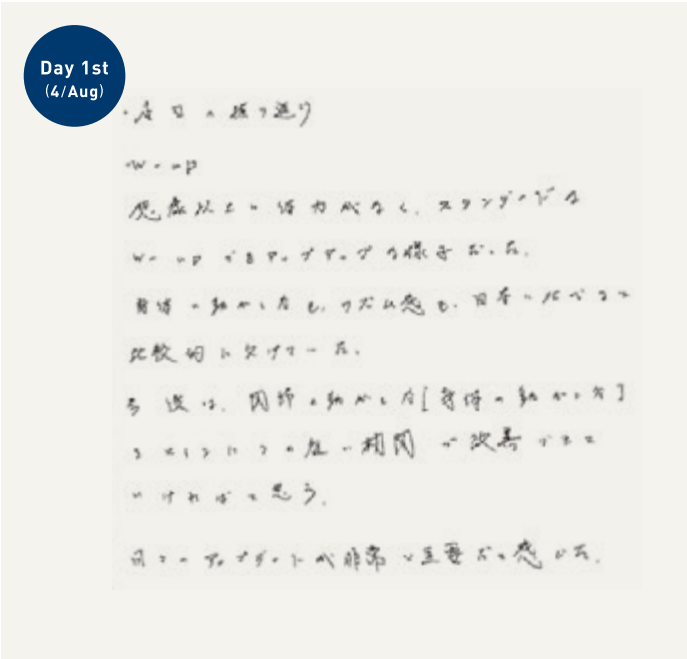 Day 1st
(4/Aug)
・本日の振り返り
w-up
想像以上に体力がなく、スタンダードな
w-upでもアップアップな様子だった。
身体の動かし方も、リズム感も、日本に比べると
比較的に欠けていた。
今後は、関節の動かし方[身体の動かし方]
の相関が改善できて
いければと思う。
日々のアップデートが非常に重要だと感じた。